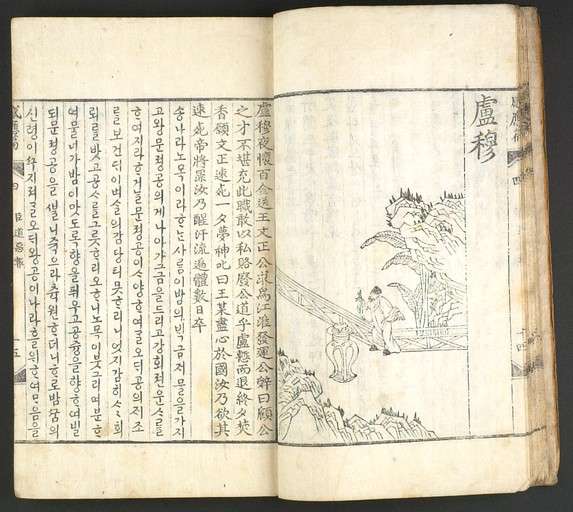 盧穆
盧穆夜懷百金送王文正公求爲江淮發運公辭曰顧公
之才不堪充此職敢以私賂廢公道乎盧慙而退終夕焚
香願文正速死一夕夢神叱曰王某盡心於國汝乃欲其
速死帝將罪汝乃醒汗流遍體數日卒
송나라노목이라ᄒᆞᄂᆞᆫ사ᄅᆞᆷ이밤의ᄇᆡᆨ금ᄌᆡ물을가지
고왕문졍공의게나아가금을드리고강회젼운ᄉᆞ를
ᄒᆞ여지라ᄒᆞ거ᄂᆞᆯ문졍공이ᄉᆞ양ᄒᆞ여ᄀᆞᆯ오ᄃᆡ공의ᄌᆡ조
를보건ᄃᆡ이벼ᄉᆞᆯ의감당티못ᄒᆞ리니엇지감히ᄉᆞᄉᆞ회
뢰를밧고공ᄉᆞ를그릇ᄒᆞ리오ᄒᆞ니노목이붓그려분ᄒᆞ
여물너가밤이맛도록향을픠우고공즁을향ᄒᆞ여빌
되문졍공을ᄲᆞᆯ니죽으라츅원ᄒᆞ더니ᄒᆞ로밤ᄭᅮᆷ의
신령이ᄭᅮ지져ᄀᆞᆯ오ᄃᆡ왕공이나라흘위ᄒᆞ여ᄆᆞᄋᆞᆷ을
四 臣道惡報 十五